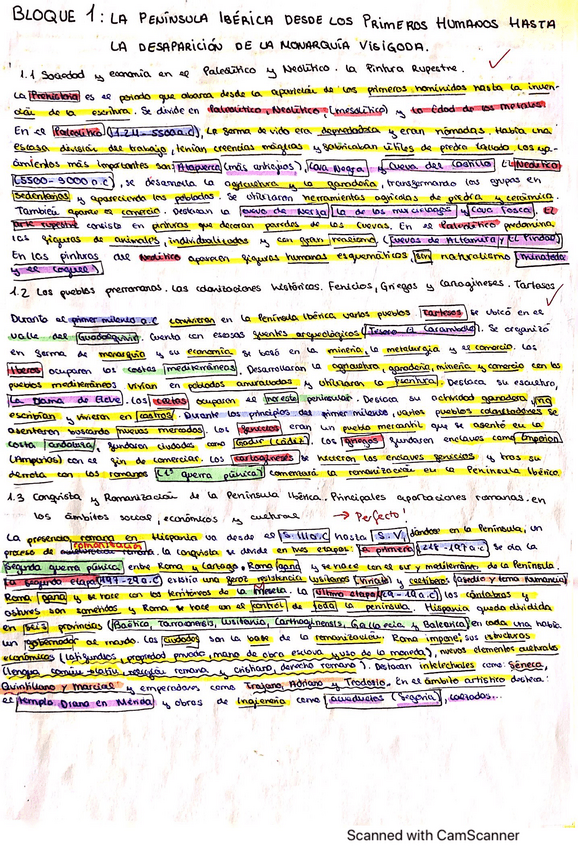 BLOQUE 1: LA PENÍNSULA IBÉRICA DESDE LOS PRIMEROS HUMANOS HASTA
LA DESAPARICIÓN DE LA MONARQUÍA VISIGODA.
1.1 Sociedad y economía en el Paleolítico y Neolítico. La Pintura Rupestre.
La Prehistoria es el periodo que abarca desde la aparición de los primeros homínidos hasta la inven-
ción de la escritura. Se divide en Paleolítico, Neolítico, (mesolítico) y la Edad de los metales.
En el Paleolítico, la forma de vida era depredadora y eran nómadas. Había una
escasa división del trabajo, tenían creencias mágicas y fabricaban útiles de piedra tallada. Los ya-
cimientos más importantes son: Atapuerca (más antiguos), Cova Negra y Cueva del Castillo. El Neolítico
(5500-3000 a.c), se desarrolla la agricultura y la ganadería, transformando los grupos en
sedentarios y apareciendo los poblados. Se utilizaron herramientas agrícolas de piedra y cerámica.
También aparece el comercio. Destacan la Cueva de Nerja, la de los murciélagos y Cova Fosca. El
arte rupestre consiste en pinturas que decoran paredes de las cuevas. En el Paleolítico predomina
las figuras de animales, individualizados y con gran realismo, (Cuevas de Altamira y El Pindal)
En las pinturas del Neolítico aparecen figuras humanas esquemáticas, sin naturalismo (Minateda
y el Cogul)
1.2 Los pueblos prerromanos. Las colonizaciones históricas. Fenicios, Griegos y Cartagineses. Tartesos
Durante el primer milenio a.c convivieron en la Península Ibérica varios pueblos. Tartesos se ubicó en el
valle del Guadalquivir. Cuenta con escasas fuentes arqueológicas (Tesoro El Carambolo). Se organizó
en forma de monarquía y su economía se basó en la minería, la metalurgia y el comercio. Los
Iberos ocuparon las costas mediterráneas. Desarrollaron la agricultura, ganadería, minería y comercio con los
pueblos mediterráneos. Vivían en poblados amurallados y utilizaron la escritura. Destaca su escultura,
La Dama de Elche. Los celtas ocuparon el noreste peninsular. Destaca su actividad ganadera, no
escribían y vivieron en castros. Durante los principios del primer milenio, varios pueblos colonizadores se
asentaron buscando nuevos mercados. Los fenicios eran un pueblo mercantil que se asentó en la
costa andaluza, fundaron ciudades como Gadir (Cádiz). Los griegos fundaron enclaves como Emporion
(Ampurias) con el fin de comerciar. Los cartagineses se hicieron los enclaves fenicios y tras su
derrota con los romanos (1ª guerra púnica) comenzará la romanización en la Península Ibérica.
1.3 Conquista y Romanización de la Península Ibérica. Principales aportaciones romanas en
los ámbitos social, económicos y cultural → Perfecto!
La presencia romana en Hispania va desde el S. III a.c hasta S. V, dándose en la Península, un
proceso de romanización. La conquista se divide en tres etapas. La primera (218-197 a.c) se da la
Segunda guerra púnica entre Roma y Cartago. Roma gana y se hace con el sur y mediterráneo de la Península.
La segunda etapa (197-29 a.c) existió una feroz resistencia lusitanos (Viriato) y celtíberos (asedio y toma Numancia)
Roma gana y se hace con los territorios de la Meseta. La última etapa (29-19 a.c) los cántabros y
astures son sometidos y Roma se hace con el control de toda la península. Hispania queda dividida
en seis provincias (Baética, Tarraconensis, Lusitania, Carthaginensis, Gallaecia y Balearica) en cada una había
un gobernador al mando. Las ciudades son la base de la romanización. Roma impone, sus estructuras
económicas (latifundios, propiedad privada, mano de obra esclava y uso de la moneda), nuevos elementos culturales
(lengua común: latín, religión romana y cristiano, derecho romano). Destacan intelectuales como: Séneca,
Quintiliano y Marcial y emperadores como Trajano, Adriano y Teodosio. En el ámbito artístico destaca:
el templo Diana en Mérida y obras de ingeniería como acueductos (Segovia), calzadas...
Scanned with CamScanner